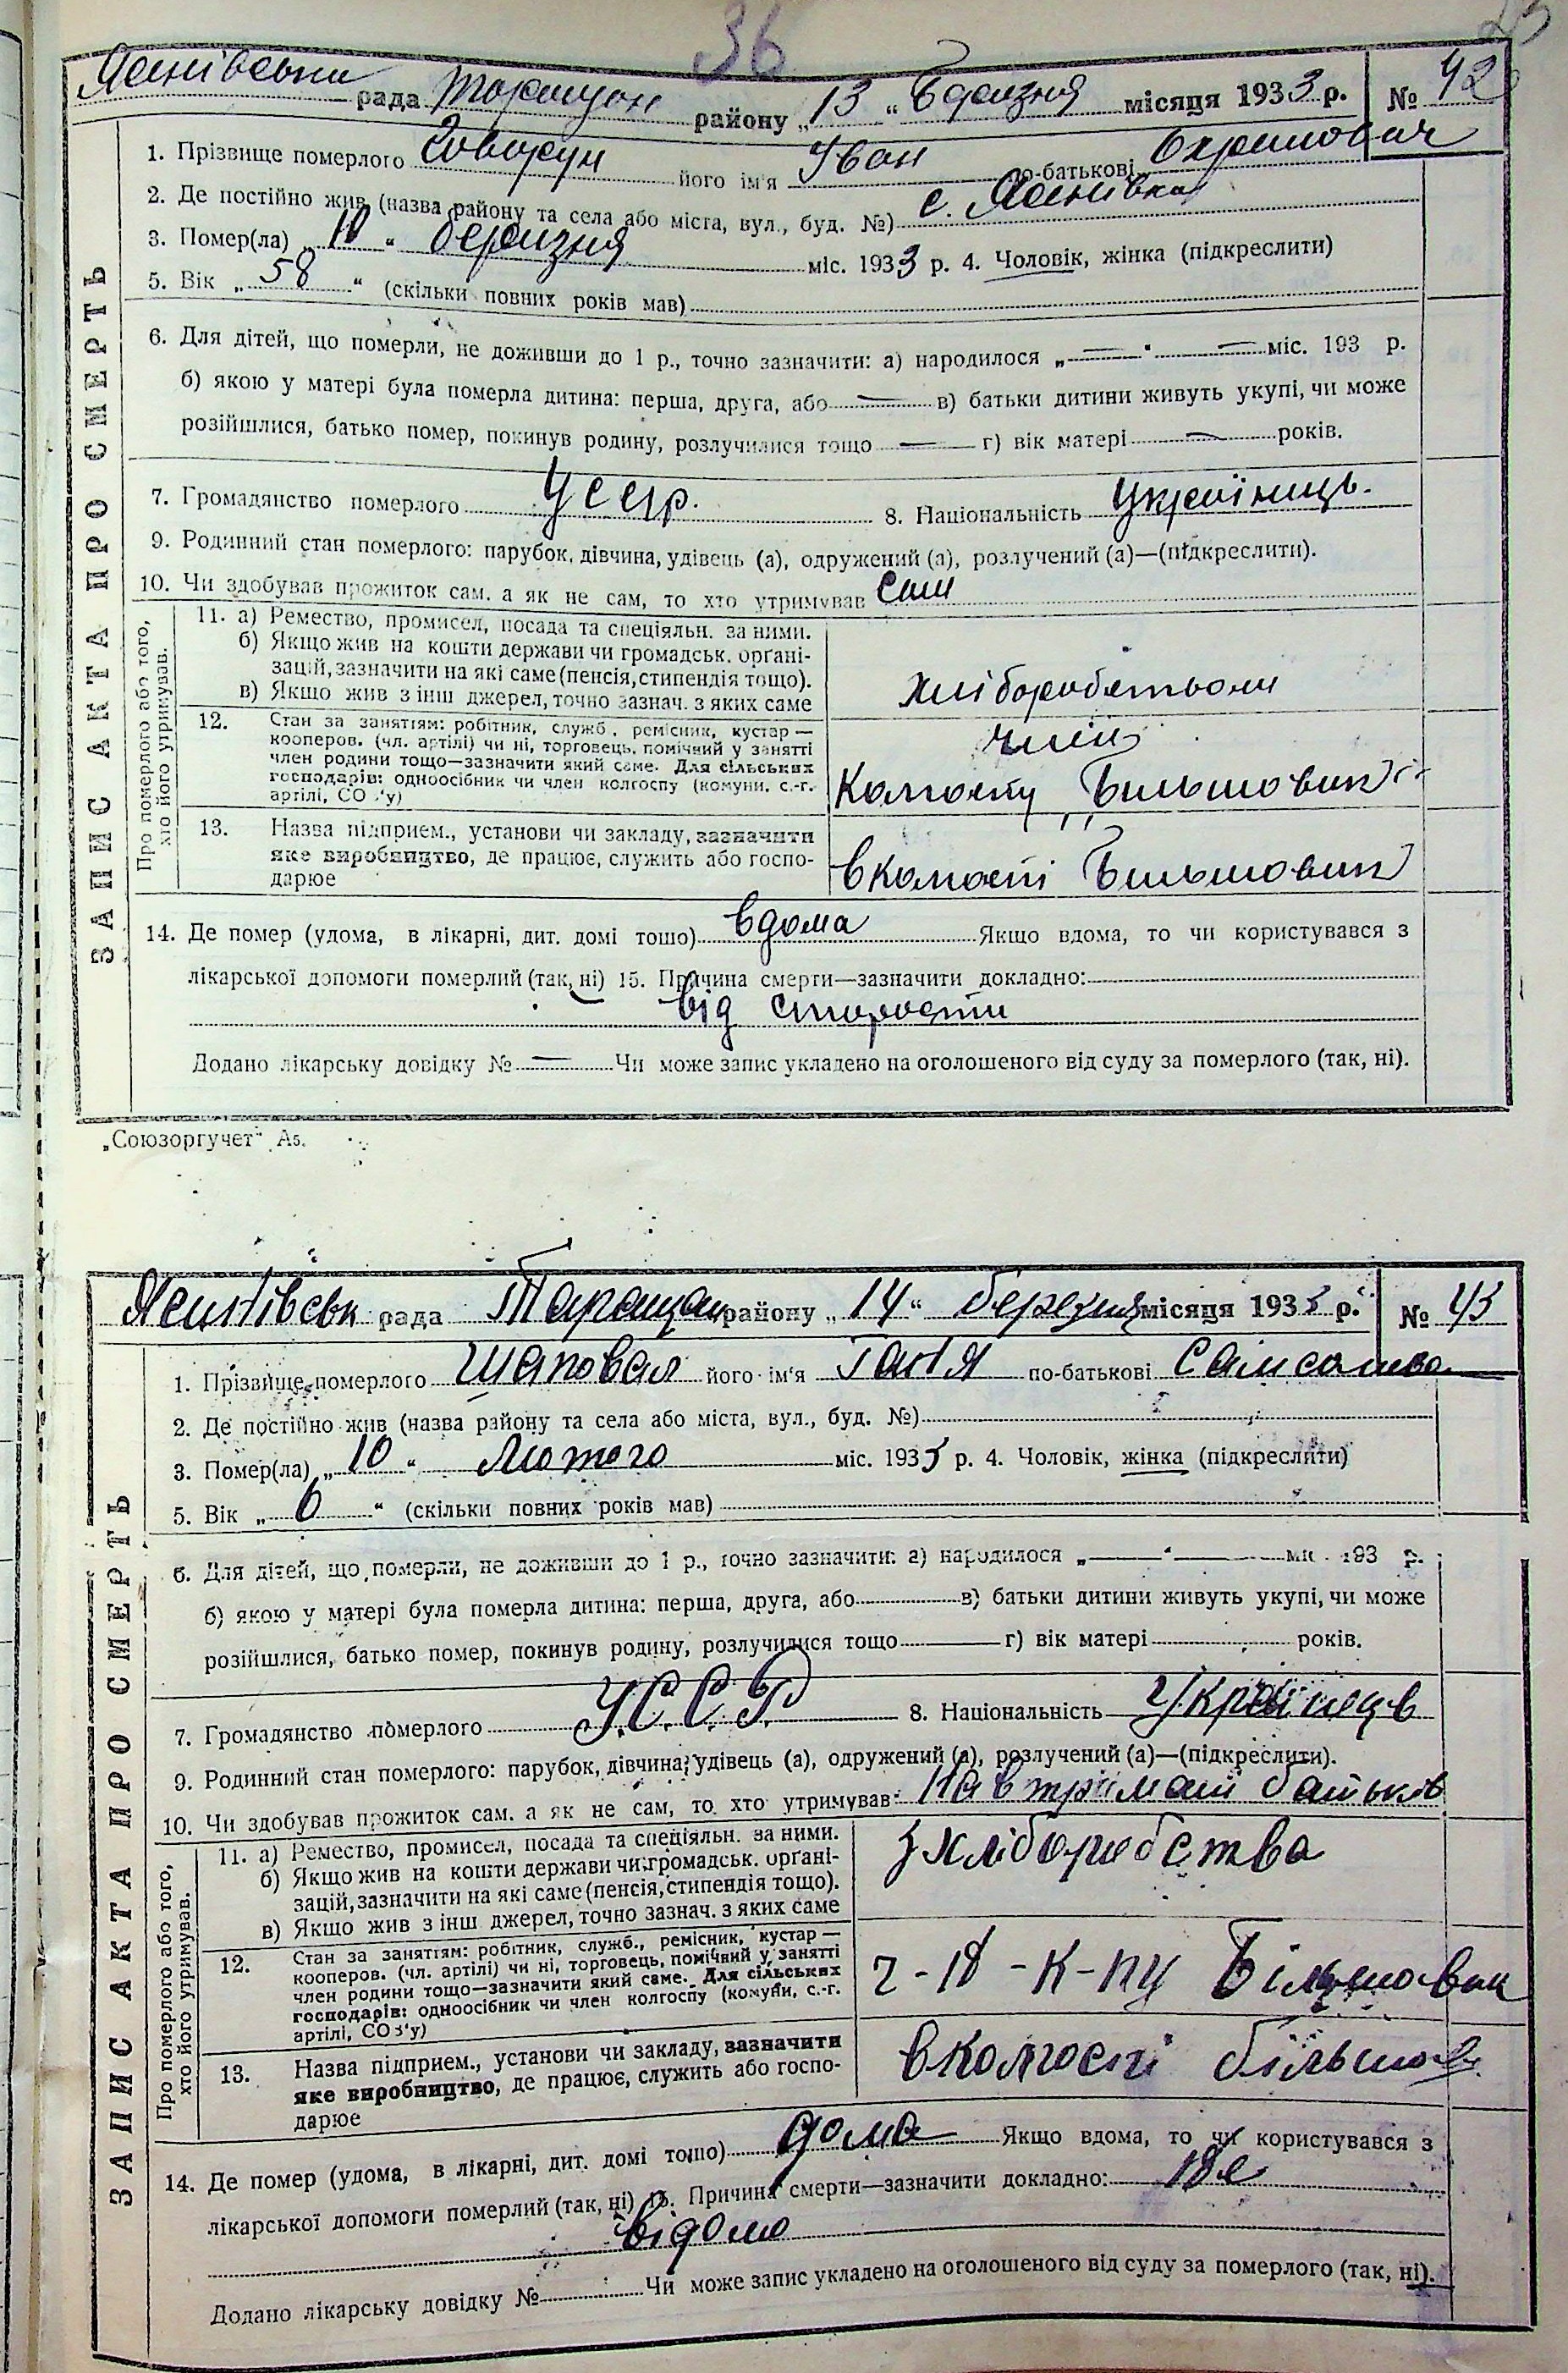 36
рада району „13“ Березня місяця 1933 р. № 42
1. Прізвище померлого його ім'я Іван по-батькові
2. Де постійно жив (назва району та села або міста, вул., буд. №) с.
3. Помер(ла) „10“ березня міс. 1933 р. 4. Чоловік, жінка (підкреслити)
5. Вік „58“ (скільки повних років мав)
6. Для дітей, що померли, не доживши до 1 р., точно зазначити: а) народилося „—“ — міс. 193 р.
б) якою у матері була померла дитина: перша, друга, або — в) батьки дитини живуть укупі, чи може
розійшлися, батько помер, покинув родину, розлучилися тощо — г) вік матері — років.
7. Громадянство померлого УССР. 8. Національність Українець.
9. Родинний стан померлого: парубок, дівчина, удівець (а), одружений (а), розлучений (а)—(підкреслити).
10. Чи здобував прожиток сам. а як не сам, то хто утримував сам
Про померлого або того,
хто його утримував.
11. а) Ремество, промисел, посада та спеціяльн. за ними.
б) Якщо жив на кошти держави чи громадськ. органі-
зацій, зазначити на які саме (пенсія, стипендія тощо).
в) Якщо жив з інш джерел, точно зазнач. з яких саме
12. Стан за заняттям: робітник, служб., ремісник, кустар —
кооперов. (чл. артілі) чи ні, торговець, помічний у занятті
член родини тощо—зазначити який саме. Для сільських
господарів: одноосібник чи член колгоспу (комуни, с.-г.
артілі, СОЗ'у)
член
колгоспу „Більшовик“
13. Назва підприєм., установи чи закладу, зазначити
яке виробництво, де працює, служить або госпо-
дарює
в колгоспі Більшовик
14. Де помер (удома, в лікарні, дит. домі тощо) вдома Якщо вдома, то чи користувався з
лікарської допомоги померлий (так, ні) 15. Причина смерти—зазначити докладно:
від старости
Додано лікарську довідку № — Чи може запис укладено на оголошеного від суду за померлого (так, ні).
ЗАПИС АКТА ПРО СМЕРТЬ
„Союзоргучет“ А5.
рада Таращан району „14“ березня місяця 1933 р. № 43
1. Прізвище померлого Шаповал його ім'я Ганя по-батькові
2. Де постійно жив (назва району та села або міста, вул., буд. №)
3. Помер(ла) „10“ Лютого міс. 1933 р. 4. Чоловік, жінка (підкреслити)
5. Вік „6“ (скільки повних років мав)
6. Для дітей, що померли, не доживши до 1 р., точно зазначити: а) народилося „—“ — міс. 193 р.
б) якою у матері була померла дитина: перша, друга, або в) батьки дитини живуть укупі, чи може
розійшлися, батько помер, покинув родину, розлучилися тощо г) вік матері років.
7. Громадянство померлого У.С.С.Р. 8. Національність Українець
9. Родинний стан померлого: парубок, дівчина, удівець (а), одружений (а), розлучений (а)—(підкреслити).
10. Чи здобував прожиток сам. а як не сам, то хто утримував: батьків
Про померлого або того,
хто його утримував.
11. а) Ремество, промисел, посада та спеціяльн. за ними.
б) Якщо жив на кошти держави чи громадськ. органі-
зацій, зазначити на які саме (пенсія, стипендія тощо).
в) Якщо жив з інш джерел, точно зазнач. з яких саме
з хліборобства
12. Стан за заняттям: робітник, служб., ремісник, кустар —
кооперов. (чл. артілі) чи ні, торговець, помічний у занятті
член родини тощо—зазначити який саме. Для сільських
господарів: одноосібник чи член колгоспу (комуни, с.-г.
артілі, СОЗ'у)
ч-н - к-пу Більшовик
13. Назва підприєм., установи чи закладу, зазначити
яке виробництво, де працює, служить або госпо-
дарює
в колгоспі більшов.
14. Де помер (удома, в лікарні, дит. домі тощо) дома Якщо вдома, то чи користувався з
лікарської допомоги померлий (так, ні) 15. Причина смерти—зазначити докладно: не
відомо
Додано лікарську довідку № Чи може запис укладено на оголошеного від суду за померлого (так, ні).
ЗАПИС АКТА ПРО СМЕРТЬ